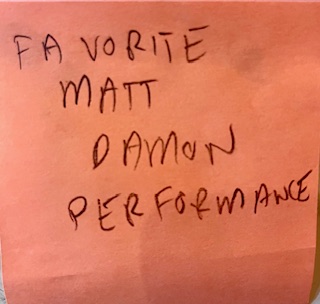 FAVORITE
MATT
DAMON
PERFORMANCE